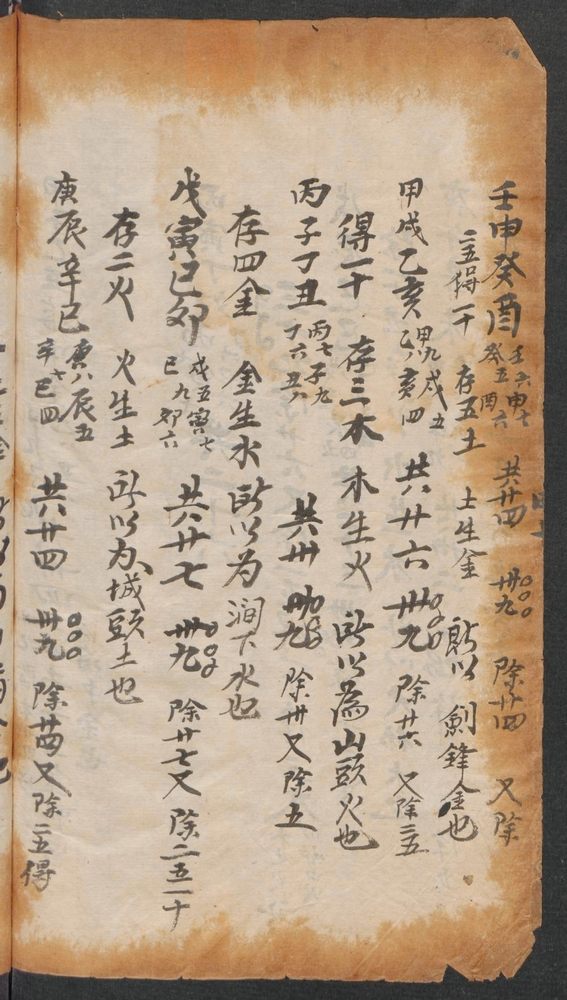 壬申癸酉 壬六申七癸五酉六 共廿四 卌九 除廿四 又除
二五得一十 存五土 土生金 所以 劍鋒金也
甲戌乙亥 甲九戌五乙八亥四 共廿六 卌九 除廿六 又除二五
得一十 存三木 木生火 所以為山頭火也
丙子丁丑 丙七子九丁六丑八 共卅 卌九 除卅又除五
存四金 金生水 所以为澗下水也
戊寅己卯 戊五寅七己九卯六 共廿七 卌九 除廿七又除二五一十
存二火 火生土 所以为城頭土也
庚辰辛巳 庚八辰五辛七巳四 共廿四 卌九 除廿四又除二五得